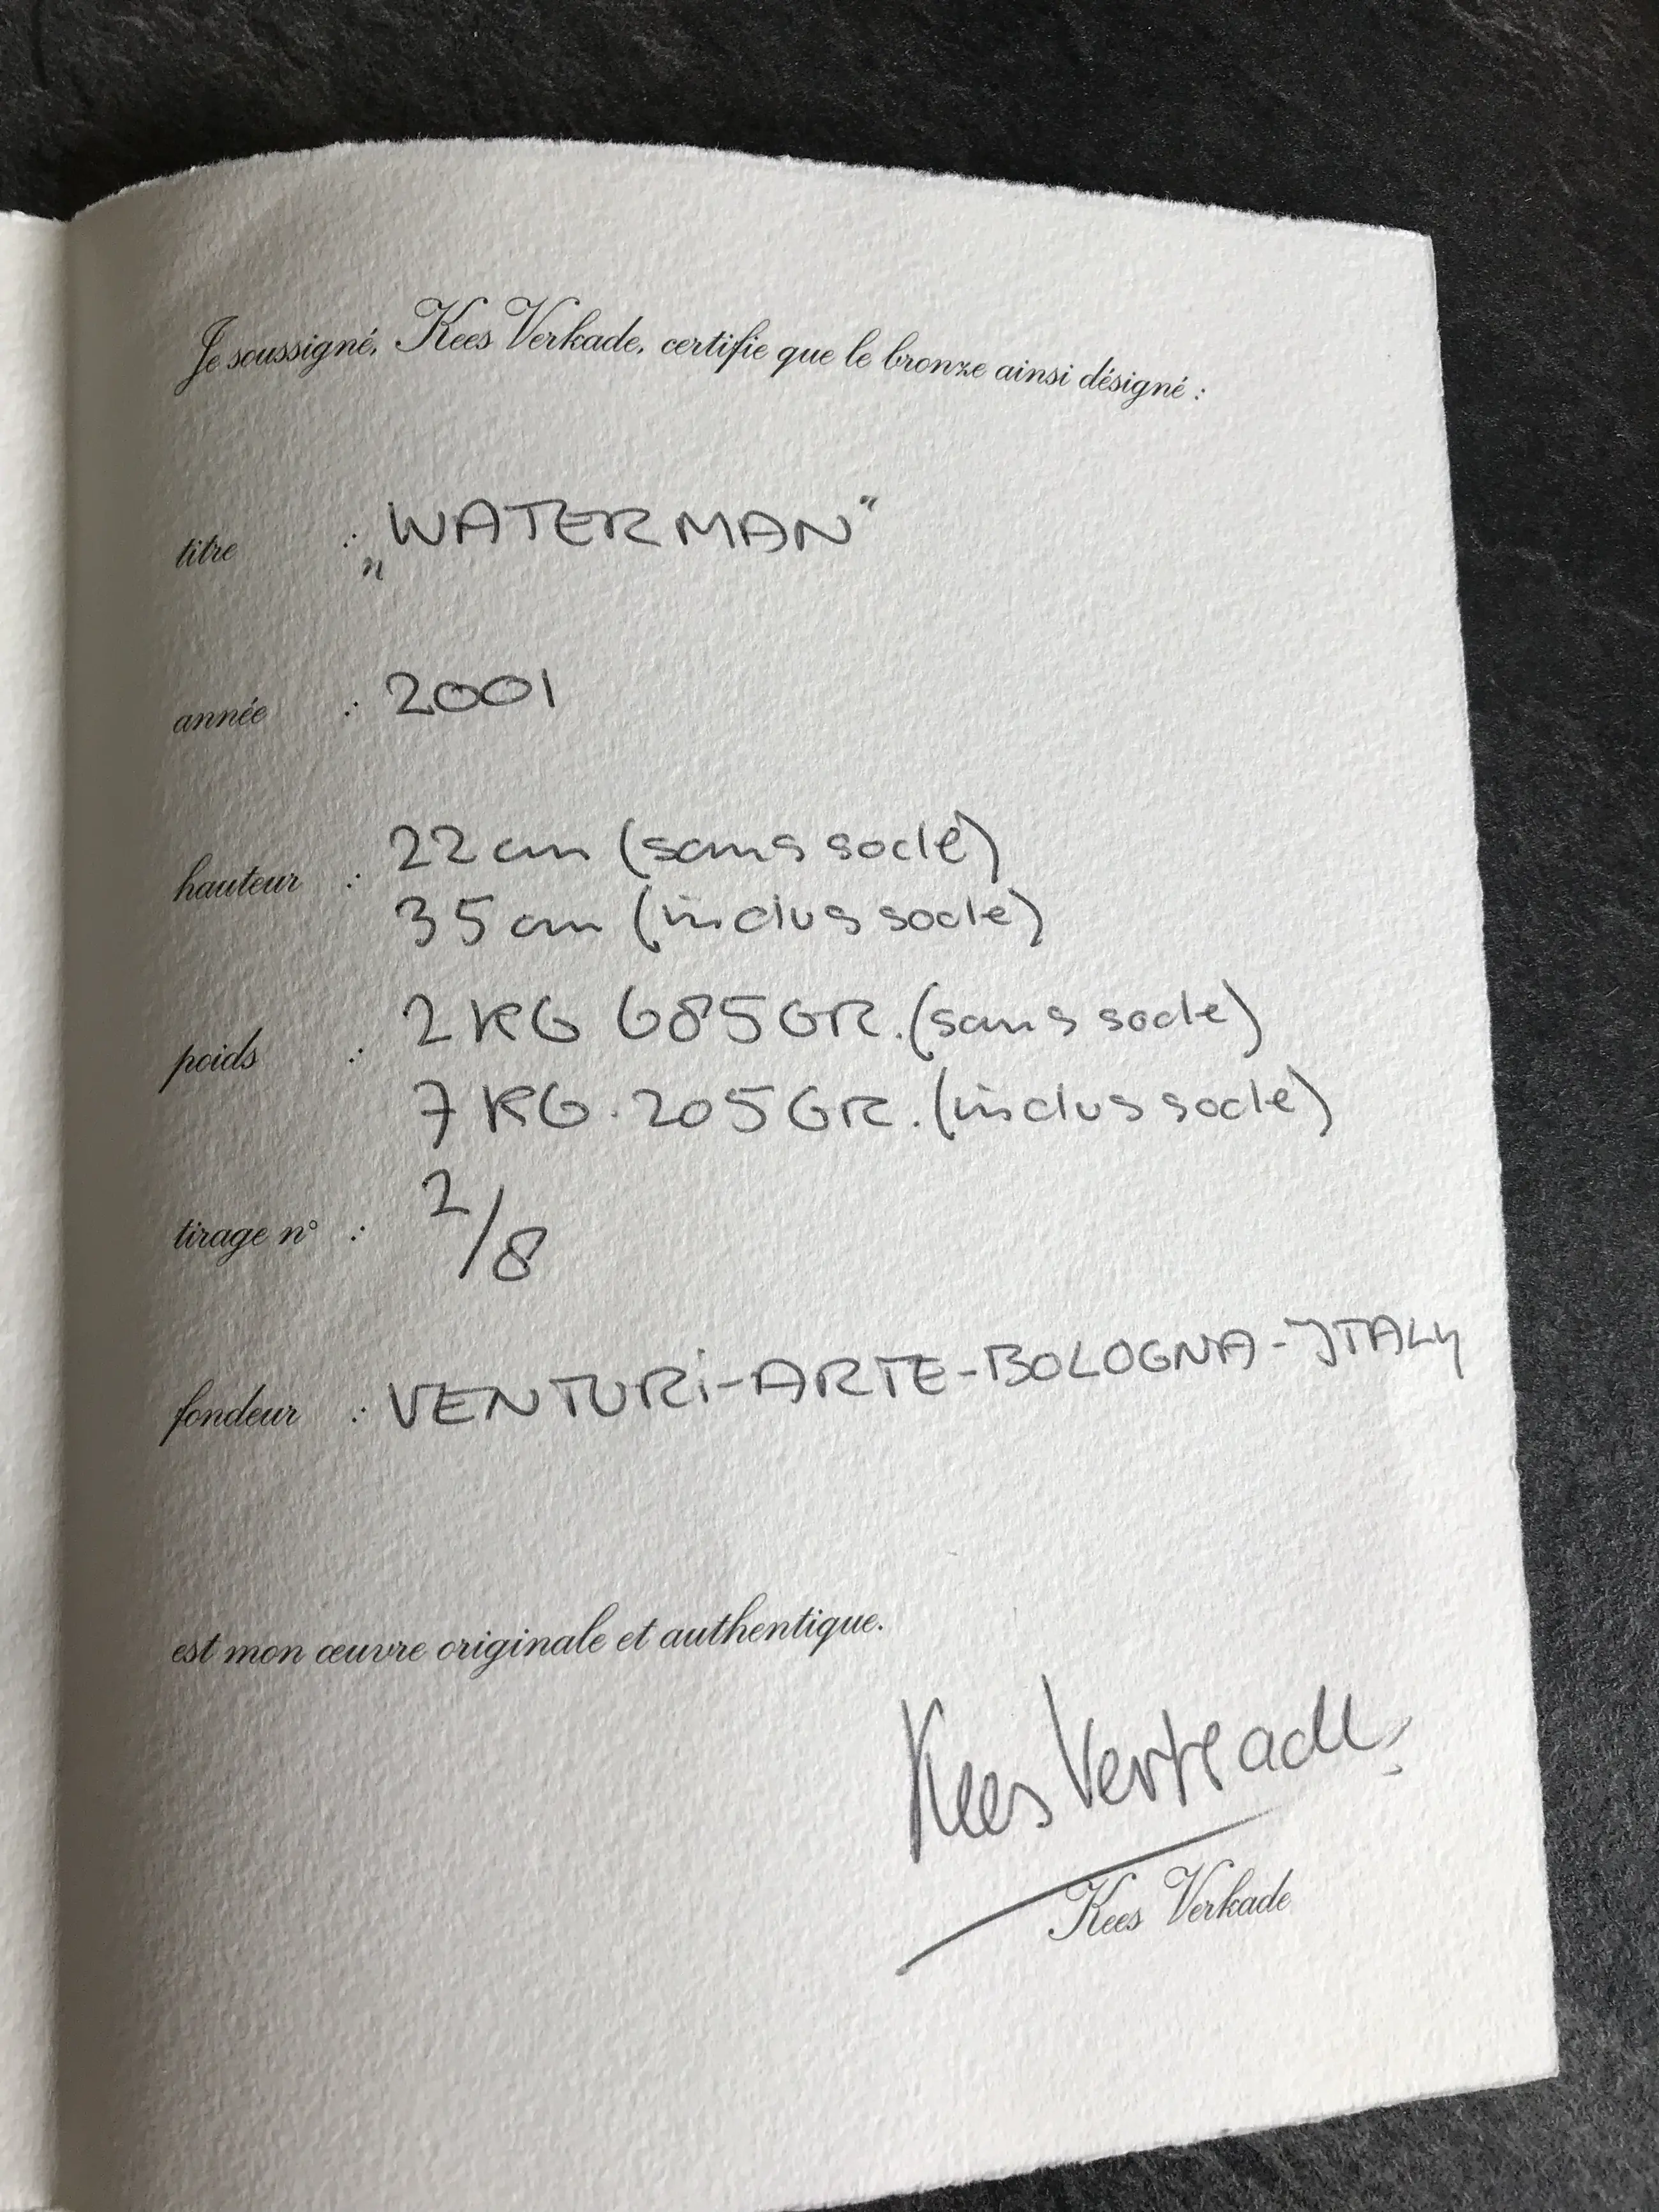 Je soussigné, Kees Verkade, certifie que le bronze ainsi désigné :
titre : „WATERMAN"
année : 2001
hauteur : 22 cm (sans socle)
35 cm (inclus socle)
poids : 2 KG 685 GR. (sans socle)
7 KG. 205 GR. (inclus socle)
tirage n° : 2/8
fondeur : VENTURi-ARTE-BOLOGNA-ITALY
est mon œuvre originale et authentique.
Kees Verkade
Kees Verkade